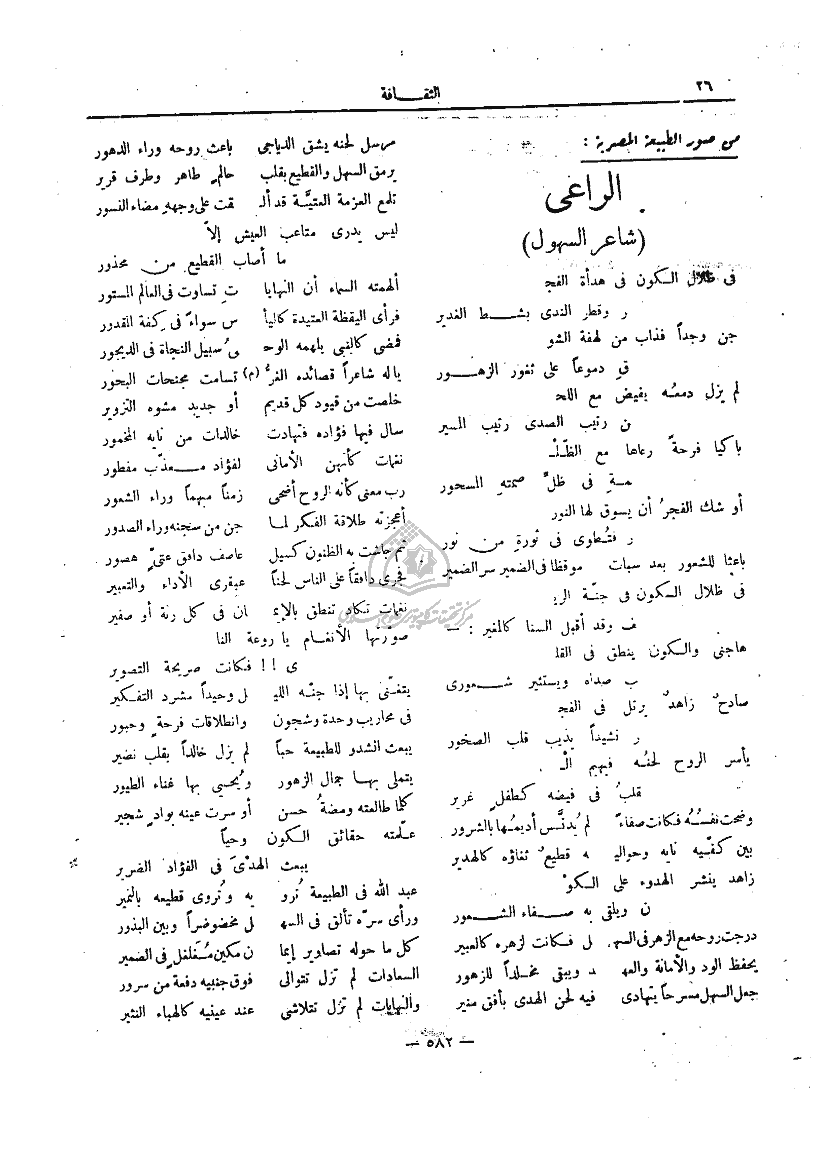 ٢٦
الثقافة
من صور الطبيعة المصرية :
الراعى
(شاعر السهول)
فى ظلال السكون فى هدأة الفجـ
ـر وقطر الندى بشـط الغدير
جن وجداً فذاب من لهفة الشو
ق دموعاً على ثغور الزهـور
لم يزل دمعـه يفيض مع اللحـ
ـن رتيب الصدى رتيب المسير
باكيا فرحة رعاها مع الظلـ
ـمة فى ظل صمته المسحور
أو شك الفجر أن يسوق لها النور
ر فتـطوى فى ثورة من نور
باعثا للشعور بعد سبات موقظا فى الضمير سر الضمير
فى ظلال السكون فى جنـة الريـ
ـف وقد أقبل السنا كالمغير : —
هاجنى والسكون ينطق فى القلـ
ـب صداه ويستثير شعورى
صادح زاهد يرتل فى الفجـ
ـر نشيداً يذيب قلب الصخور
يأسر الروح لحنه فيهيم الـ
قلب فى فيضه كطفل غرير
وضحت نفسُه فكانت صفاء لم يُدنَّس أديمها بالشرور
بين كفّيه نايه وحواليـ ـه قطيع ثغاؤه كالهدير
زاهد ينشر الهدوء على الكو
ن ويلقى به صفاء الشعور
درجت روحه مع الزهر فى السهـ ـل فكانت لزهره كالعبير
يحفظ الود والأمانة والعهـ ـد ويبقى مخلداً للزهور
جعل السهل مسرحاً يتهادى فيه لحن الهدى بأفق منير
مرسل لحنه يشق الدياجى باعث روحه وراء الدهور
يرمق السهل والقطيع بقلب حالم طاهر وطرف قرير
تلمع العزمة العتيَّة قد ألـ ـقت على وجهه مضاء النسور
ليس يدرى متاعب العيش إلاّ
ما أصاب القطيع من محذور
ألهمته السماء أن النهايا ت تساوت فى العالم المستور
فرأى اليقظة العتيدة كاليأ س سواء فى كفة المقدور
فمضى كالنبى يلهمه الوحـ ـىُ سبيل النجاة فى الديجور
ياله شاعراً قصائده الغرّ (م) تسامت مجنحات البحور
خلصت من قيود كل قديم أو جديد مشوه التزوير
سال فيها فؤاده فتهادت خالدات من نايه المخمور
نغمات كأنهن الأمانى لفؤاد معذّب مفطور
رب معنى كأنه الروح أضحى زمناً مبهماً وراء الشعور
أعجزته طلاقة الفكر لما جن من سجنه وراء الصدور
ثم جاشت به الظنون كسيل عاصف دافق عتىّ هصور
فجرى دافقاً على الناس لحناً عبقرى الأداء والتعبير
نغمات تكاد تنطق بالإيمـ ـان فى كل رنة أو صفير
صورتها الأنغام يا روعة النا
ى !! فكانت صريحة التصوير
يتغنّى بها إذا جنه الليـ ـل وحيداً مشرد التفكير
فى محاريب وحدة وشجون وانطلاقات فرحة وحبور
يبعث الشدو للطبيعة حباً لم يزل خالداً بقلب نضير
يتملى بها جمال الزهور ويُحيى بها غناء الطيور
كلما طالعته ومضة حسن أو سرت عينه بواد شجير
علّمته حقائق الكون وحياً
يبعث الهدىَ فى الفؤاد الضرير
عبد الله فى الطبيعة تُرو يه وتُروى قطيعه بالنمير
ورأى سرّه تألق فى السهـ ـل مخضوضراً وبين البذور
كل ما حوله تصاوير إيما ن مكين مُـتغلغل فى الضمير
السعادات لم تزل تتوالى فوق جنبيه دفعة من سرور
والنهايات لم تزل تتلاشى عند عينيه كالهباء النثير
— ٥٨٢ —